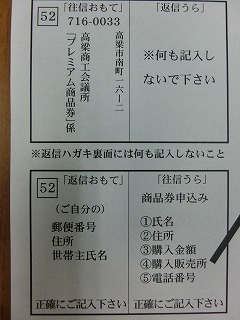 52
「往信おもて」
716-0033
高梁市南町一六ー二
高梁商工会議所
「プレミアム商品券」係
「返信うら」
※何も記入し
ないで下さい
※返信ハガキ裏面には何も記入しないこと
52
「返信おもて」
(ご自分の)
郵便番号
住所
世帯主氏名
正確にご記入下さい
「往信うら」
商品券申込み
①氏名
②住所
③購入金額
④購入販売所
⑤電話番号
正確にご記入下さい